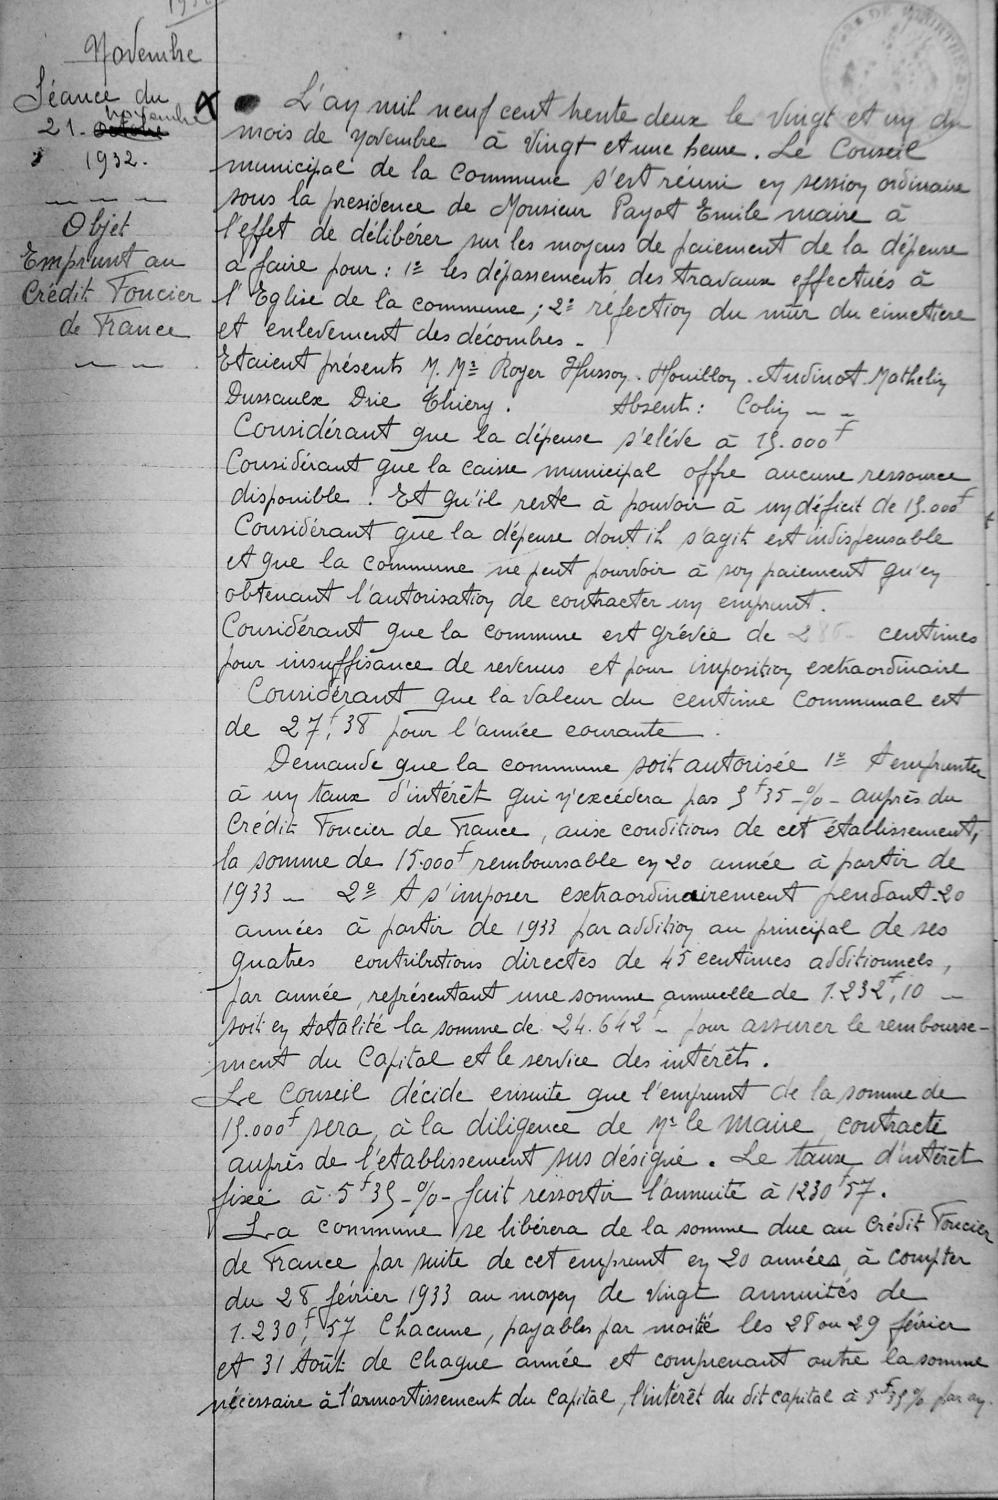 Novembre
Séance du
novembre
21 - octobre
1932.
Objet
Emprunt au
Crédit Foncier
de France
L'an mil neuf cent trente deux le vingt et un du
mois de novembre à vingt et une heure. Le Conseil
municipal de la Commune s'est réuni en session ordinaire
sous la presidence de Monsieur Payot Emile maire à
l'effet de délibérer sur les moyens de paiement de la dépense
à faire pour : 1º les dépassements des travaux effectués à
l'Eglise de la commune ; 2º réfection du mûr du cimetiere
et enlevement des décombres -
Etaient présents M. Mrs Royer Husson - Houillon - Audinot - Mathelin
Dussaulx Drie Thiery. Absent : Colin - -
Considérant que la dépense s'eléve à 15.000f
Considérant que la caisse municipal offre aucune ressource
disponible ! Et qu'il reste à pouvoir à un déficit de 15.000f
Considérant que la dépense dont il s'agit est indispensable
et que la commune ne peut pourvoir à son paiement qu'en
obtenant l'autorisation de contracter un emprunt.
Considérant que la commune est grévée de centimes
pour insuffisance de revenus et pour imposition extraordinaire
Considérant que la valeur du centime communal est
de 27f,38 pour l'année courante.
Demande que la commune soit autorisée 1º A emprunter
à un taux d'intérêt qui n'excédera pas 5f35 -%- auprès du
Crédit Foncier de France, aux conditions de cet établissement,
la somme de 15.000f remboursable en 20 année à partir de
1933 - 2º A s'imposer extraordinairement pendant 20
années à partir de 1933 par addition au principal de ses
quatres contributions directes de 45 centimes additionnels,
par année, représentant une somme annuelle de 1.232f,10 -
soit en totalité la somme de 24.642f - pour assurer le rembourse-
ment du Capital et le service des intérêts.
Le Conseil décide ensuite que l'emprunt de la somme de
15.000f sera, à la diligence de Mr le Maire, contracté
auprès de l'etablissement sus désigné. Le taux d'intérêt
fixé à 5f35 -%- fait ressortir l'annuité à 1230f57.
La commune se libérera de la somme due au Crédit Foncier
de France par suite de cet emprunt en 20 années, à compter
du 28 février 1933 au moyen de vingt annuités de
1.230f,57 Chacune, payables par moitié les 28 ou 29 février
et 31 Août de Chaque année et comprenant outre la somme
nécessaire à l'armortissement du Capital, l'intérêt du dit capital à 5f35% par an.